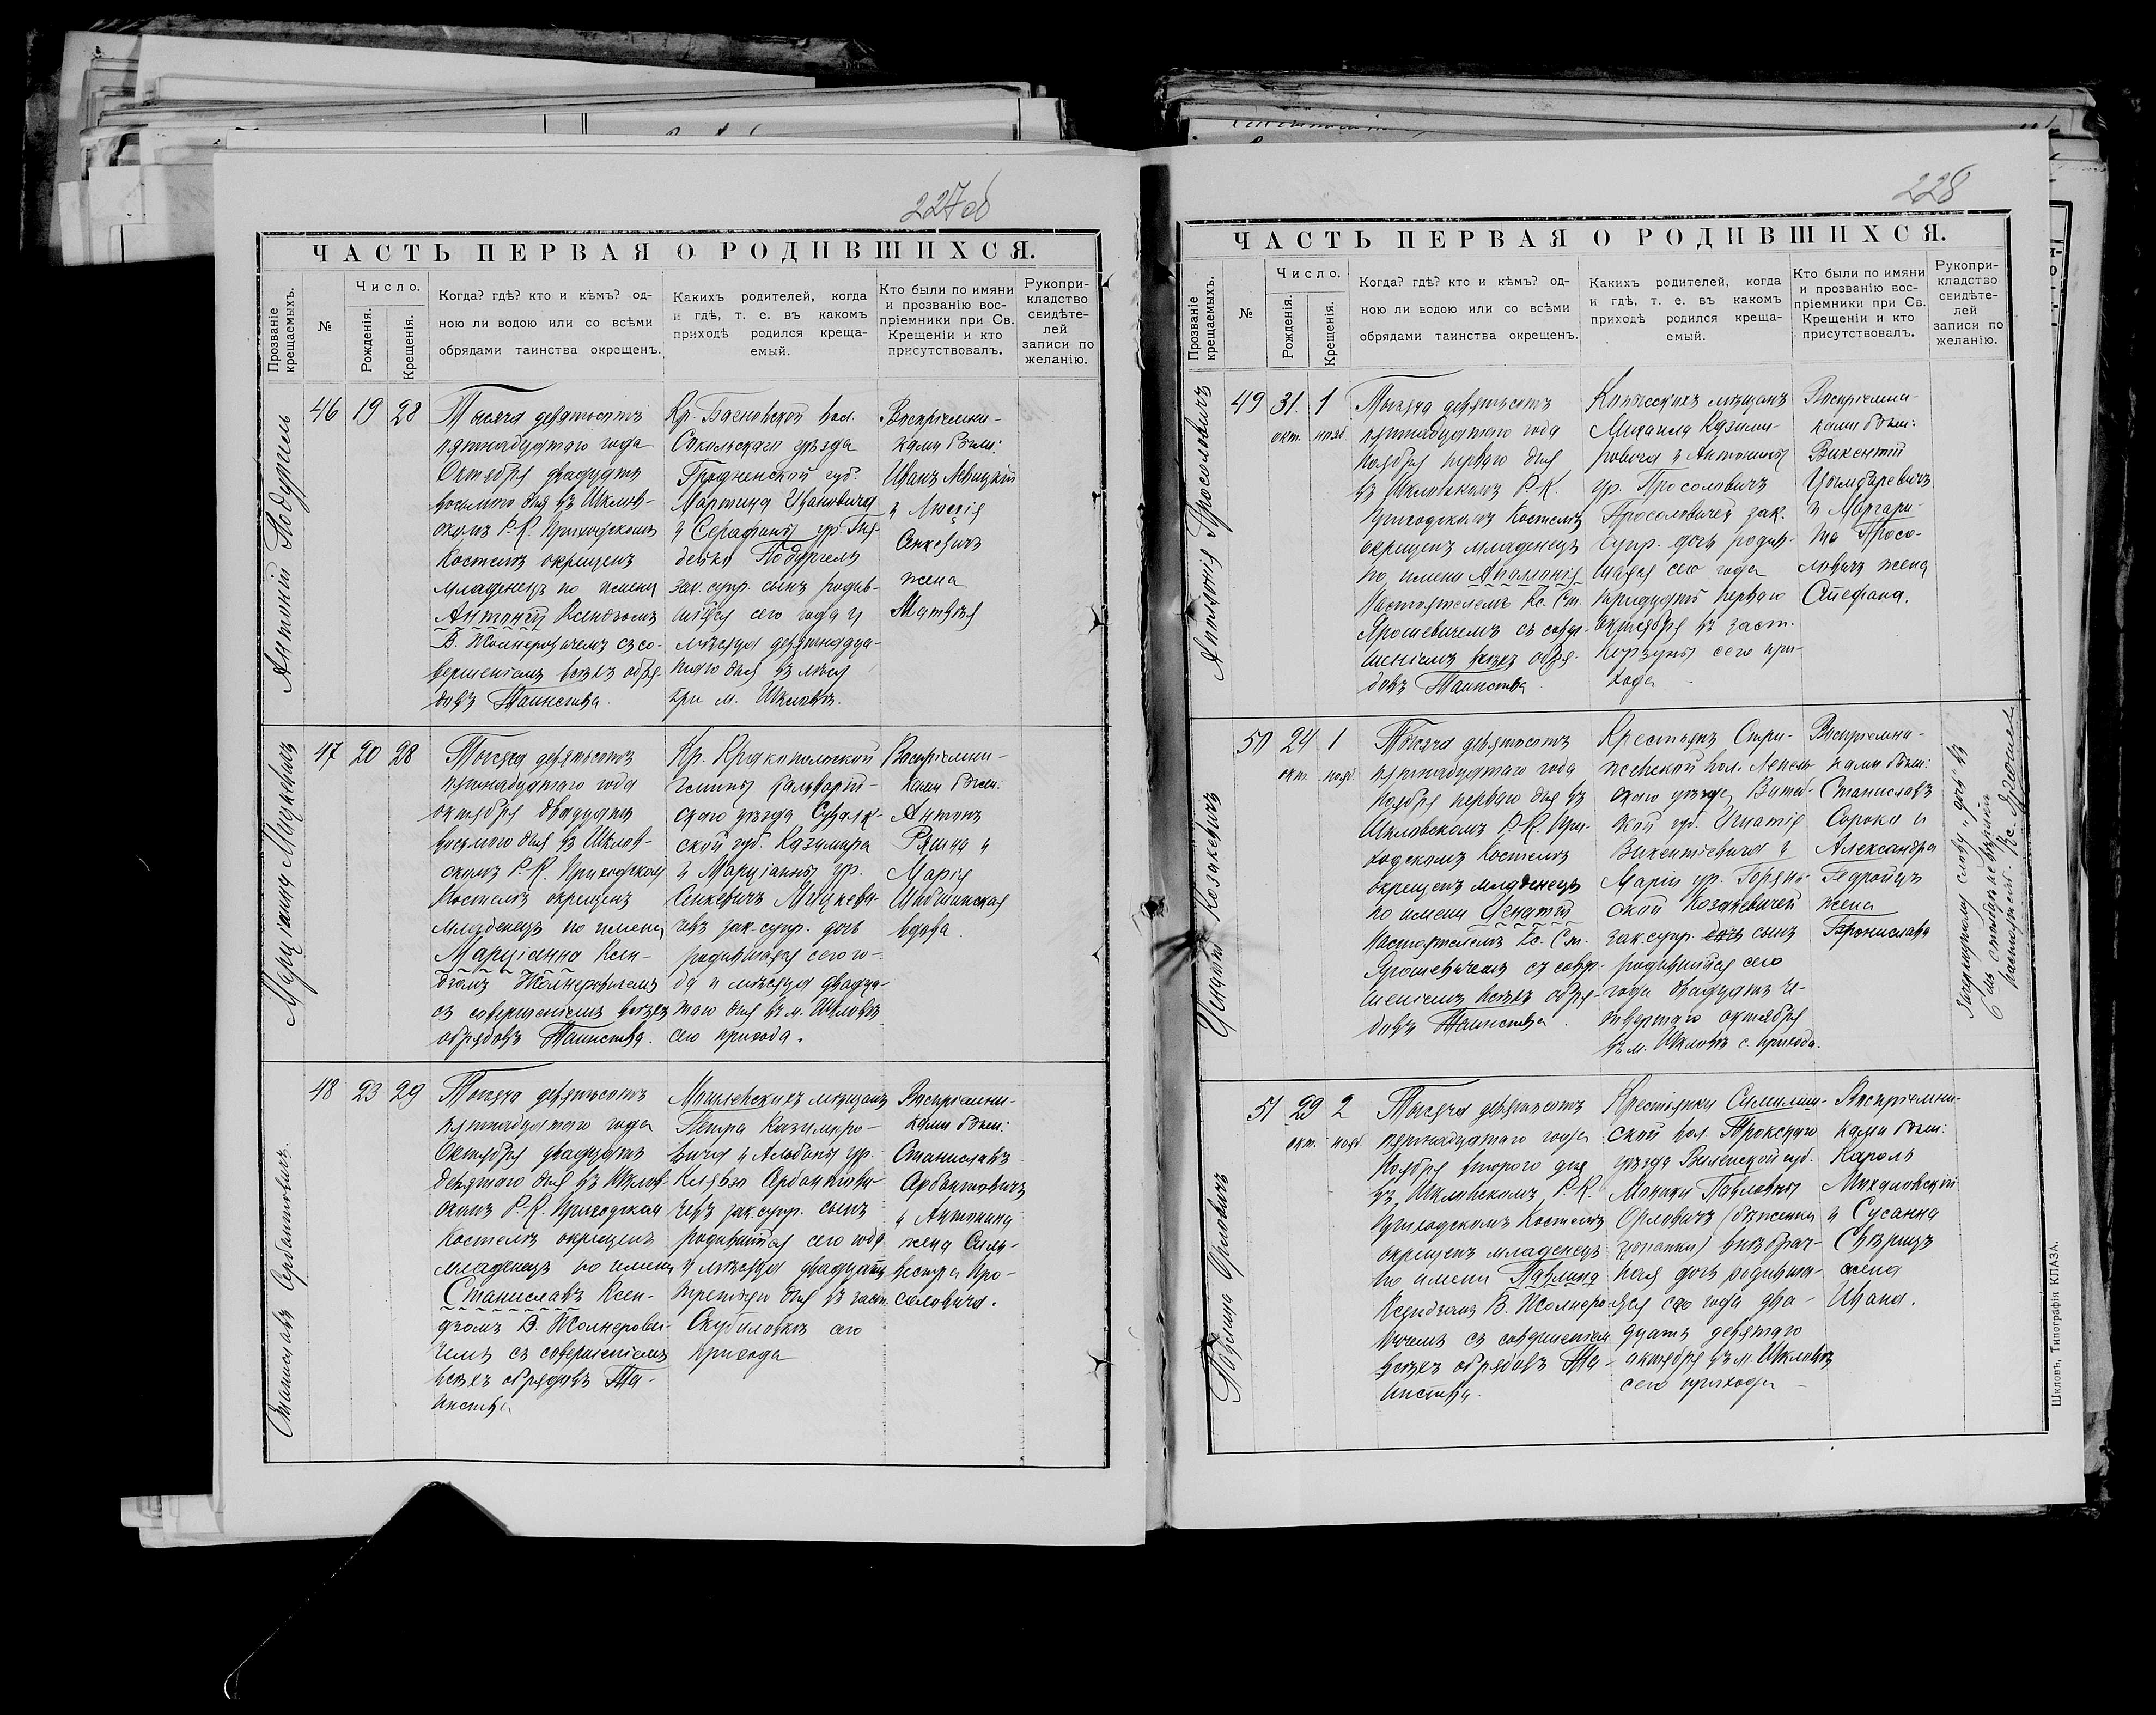 227об
ЧАСТЬ ПЕРВАЯ О РОДИВШИХСЯ.
Прозваніе крещаемыхъ.
№
Число.
Рожденія.
Крещенія.
Когда? гдѣ? кто и кѣмъ? од-
ною ли водою или со всѣми
обрядами таинства окрещенъ.
Какихъ родителей, когда
и гдѣ, т. е. въ какомъ
приходѣ родился креща-
емый.
Кто были по имяни
и прозванію вос-
пріемники при Св.
Крещеніи и кто
присутствовалъ.
Рукопри-
кладство
свидѣте-
лей
записи по
желанію.
Антоній
46 19 28
Тысяча девятьсотъ
пятнадцатаго года
Октября двадцать
восьмого дня въ Шклов-
скомъ Р.-К. Приходскомъ
Костелѣ окрещенъ
младенецъ по имени
Антоній Ксендзомъ
В. Жолнеровичемъ съ со-
вершеніемъ всѣхъ обря-
довъ Таинства.
Кр. вол.
Сокольскаго уѣзда
Гродненской губ.
Мартина Ивановича
и Серафины ур.
зак. супр. сынъ родив-
шійся сего года и
мѣсяца девятнадца-
таго дня въ
при м. Шкловѣ.
Воспріемни-
ками были:
Иванъ Левицкій
и
жена
Матвѣя
Марціанна Мицкевичъ
47 20 28
Тысяча девятьсотъ
пятнадцатаго года
октября двадцать
восьмого дня въ Шклов-
скомъ Р.-К. Приходскомъ
Костелѣ окрещенъ
младенецъ по имени
Марціанна Ксен-
дзомъ Жолнеровичемъ
съ совершеніемъ всѣхъ
обрядовъ Таинства.
Кр.
гмины Кальварій-
скаго уѣзда Сувалк-
ской губ. Казимира
и Марціанны ур.
Мицкеви-
чей зак. супр. дочь
родившаяся сего го-
да и мѣсяца двадца-
таго дня въ м. Шкловѣ
сего прихода.
Воспріемни-
ками были:
Антонъ
и
Марія
вдова.
Станиславъ
48 23 29
Тысяча девятьсотъ
пятнадцатаго года
Октября двадцать
девятаго дня въ Шклов-
скомъ Р.-К. Приходскомъ
Костелѣ окрещенъ
младенецъ по имени
Станиславъ Ксен-
дзомъ В. Жолнерови-
чемъ съ совершеніемъ
всѣхъ обрядовъ Та-
инства
Могилевскихъ мѣщанъ
Петра Казимиро-
вича и Альбины ур.
чей зак. супр. сынъ
родившійся сего года
и мѣсяца двадцать
третьяго дня въ заст.
сего
прихода
Воспріемни-
ками были:
Станиславъ
и Антонина
жена Силь-
вестра Про-
соловича.
228
ЧАСТЬ ПЕРВАЯ О РОДИВШИХСЯ.
Прозваніе крещаемыхъ.
№
Число.
Рожденія.
Крещенія.
Когда? гдѣ? кто и кѣмъ? од-
ною ли водою или со всѣми
обрядами таинства окрещенъ.
Какихъ родителей, когда
и гдѣ, т. е. въ какомъ
приходѣ родился креща-
емый.
Кто были по имяни
и прозванію вос-
пріемники при Св.
Крещеніи и кто
присутствовалъ.
Рукопри-
кладство
свидѣте-
лей
записи по
желанію.
Просоловичъ
49 31 1
окт. нояб.
Тысяча девятьсотъ
пятнадцатаго года
Ноября перваго дня
въ Шкловскомъ Р.-К.
Приходскомъ Костелѣ
окрещенъ младенецъ
по имени Аполонія
Настоятелемъ Кс. Ст.
Ярошевичемъ съ совер-
шеніемъ всѣхъ обря-
довъ Таинства.
Копысскихъ мѣщанъ
Михаила Казими-
ровича и Антонины
ур. Просоловичъ
Просоловичей зак.
супр. дочь родив-
шаяся сего года
тридцать перваго
октября въ заст.
сего при-
хода
Воспріемни-
ками были:
Викентій
и Маргари-
та Просо-
ловичъ жена
Стефана.
Игнатій Козакевичъ
50 24 1
окт. нояб.
Тысяча девятьсотъ
пятнадцатаго года
Ноября перваго дня въ
Шкловскомъ Р.-К. При-
ходскомъ Костелѣ
окрещенъ младенецъ
по имени Игнатій
Настоятелемъ Кс. Ст.
Ярошевичемъ съ совер-
шеніемъ всѣхъ обря-
довъ Таинства.
Крестьянъ Стри-
жевской вол. Лепель-
скаго уѣзда Витеб-
кой губ. Игнатія
Викентіевича и
Маріи ур.
Козакевичей
зак. супр. дочь сынъ
родившійся сего
года двадцать че-
твертаго октября
въ м. Шкловѣ с. прихода.
Воспріемни-
ками были:
Станиславъ
Сорока и
Александра
Гедройцъ
жена
Бронислава
Зачеркнутому слову „дочь" въ
6мъ столбцѣ не вѣрить
Настоятель Кс.
Павлина Орловичъ
51 29 2
окт. нояб.
Тысяча девятьсотъ
пятнадцатаго года
Ноября второго дня
въ Шкловскомъ Р.-К.
Приходскомъ Костелѣ
окрещенъ младенецъ
по имени Павлина
Ксендзомъ В. Жолнеро-
вичемъ съ совершеніемъ
всѣхъ обрядовъ Та-
инства.
Крестьянки
ской вол. Трокскаго
уѣзда Виленской губ.
Моники Павловны
Орловичъ (бѣженки
) внѣбрач-
ная дочь родивша-
яся сего года два-
дцать девятаго
октября въ м. Шкловѣ
сего прихода
Воспріемни-
ками были:
Кароль
Михаловскій
и Сусанна
жена
Ивана.
Шкловъ, Типографія КЛАЗА.